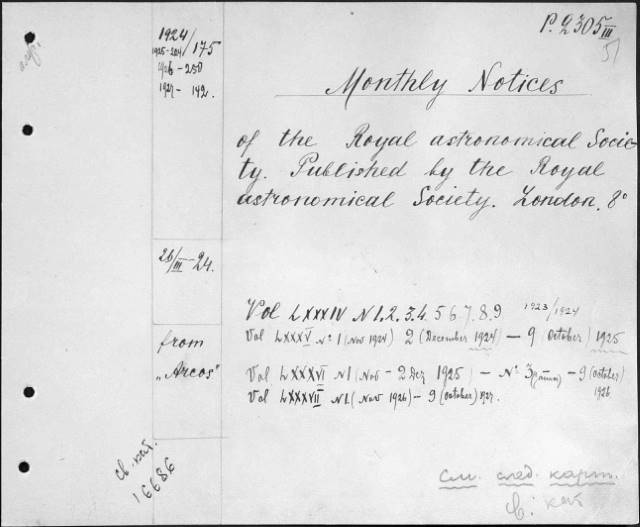 P. 2305 III
51
1924/175
1925-204
1926-250
1927-142.
Monthly Notices
of the Royal astronomical Socie-
ty. Published by the Royal
astronomical Society. London. 8°
26/III-24.
from
„Arcos"
Vol LXXXIV N 1.2.3.4. 5 6.7.8.9 1923/1924
Vol LXXXV N° 1 (Nov 1924) 2 (December 1924) — 9 (October) 1925
Vol LXXXVI N 1 (Nov - 2 Dez 1925) — N° 3 - 9 (October) 1926
Vol LXXXVII N 1. (Nov 1926) - 9 (October) 1927.
св. кат.
16686
См. след. карт.
св. кат